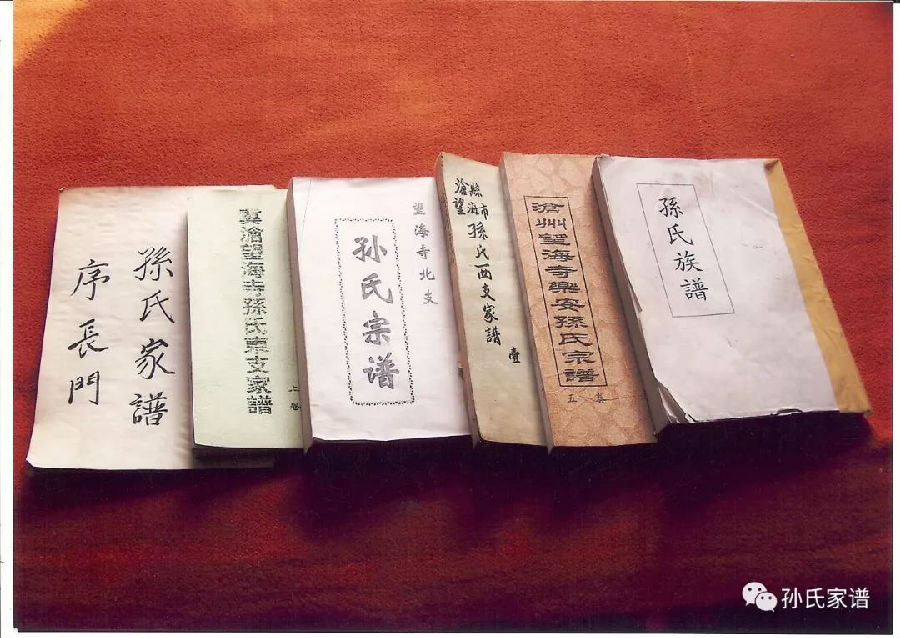 孫氏家譜
序長門
冀滄望海寺孫氏東支家譜
上卷
望海寺北支
孙氏宗谱
孫氏西支家譜
壹
滄州望海寺樂安孫氏宗譜
五集
孫氏族譜
孙氏家谱